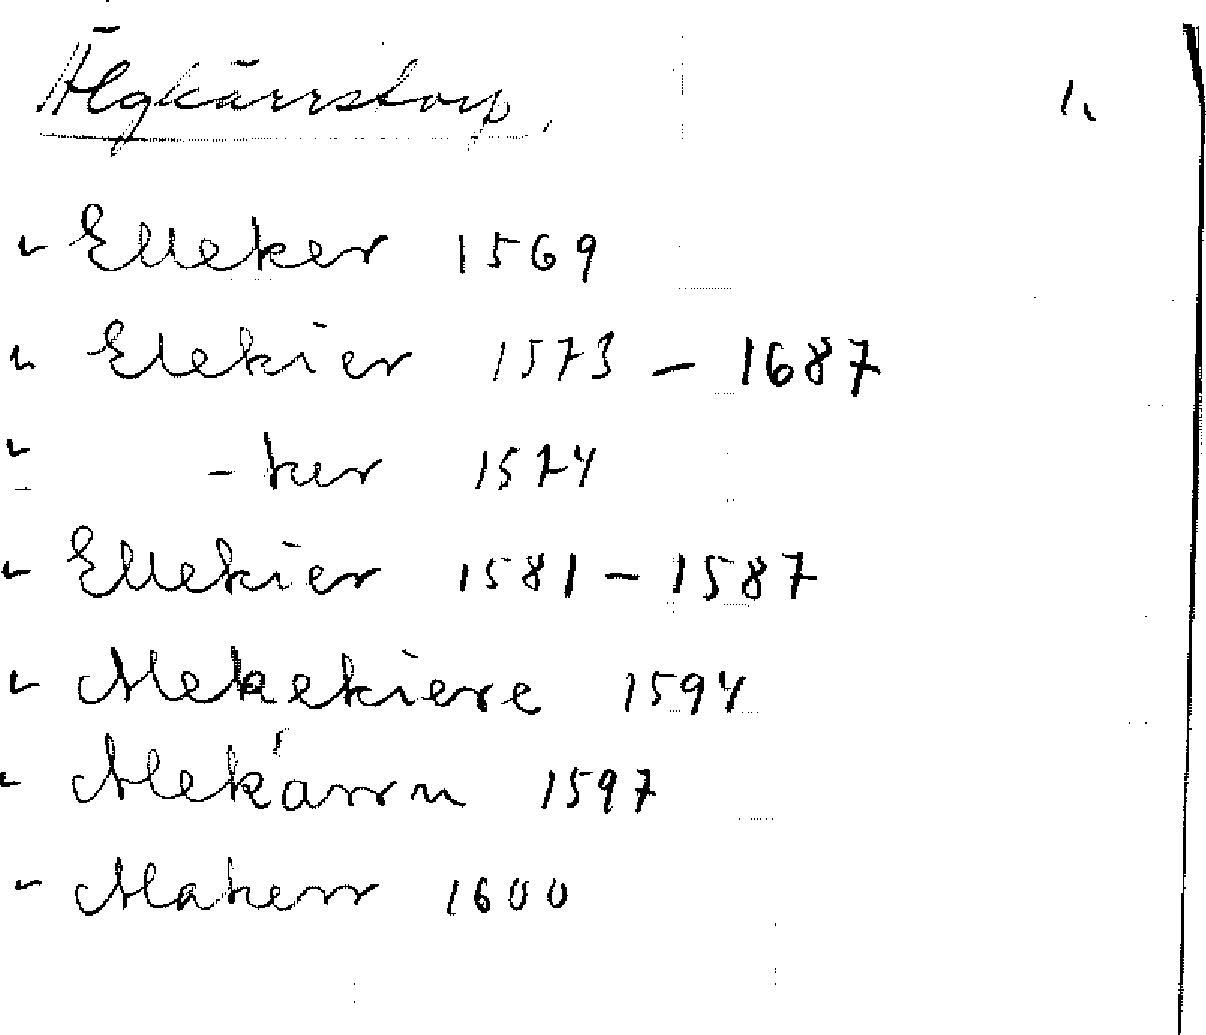 Älgkärrstorp, 1.
Elleker 1569
Elekier 1573 – 1687
- ker 1574
Ellekier 1581 – 1587
Alekekiere 1594
Alekárrn 1597
Alakerr 1600